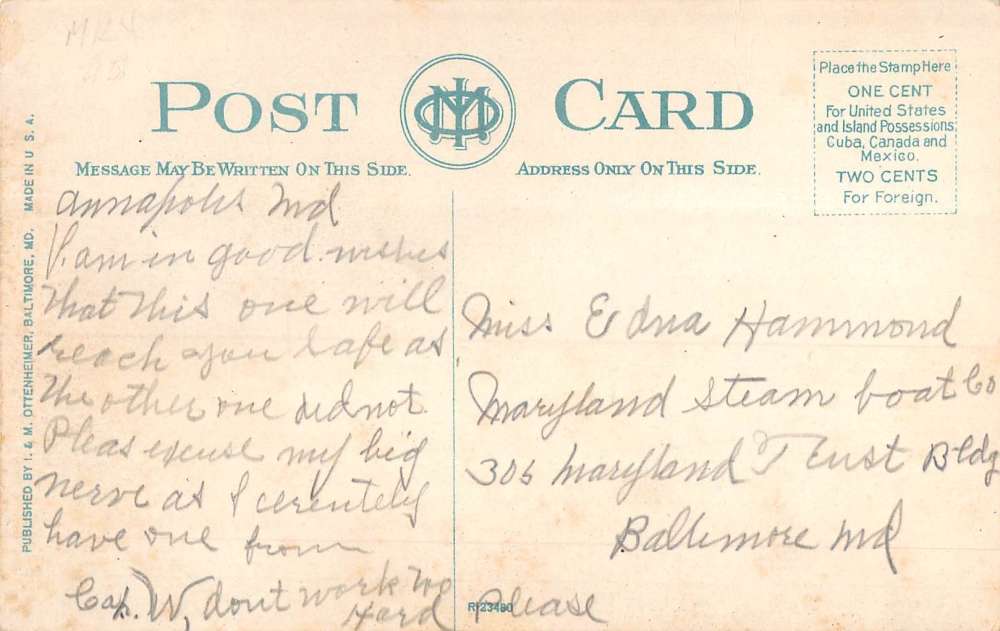 POST CARD
MESSAGE MAY BE WRITTEN ON THIS SIDE.
ADDRESS ONLY ON THIS SIDE.
Place the Stamp Here
ONE CENT
For United States
and Island Possessions,
Cuba, Canada and
Mexico.
TWO CENTS
For Foreign.
PUBLISHED BY I. & M. OTTENHEIMER, BALTIMORE, MD. MADE IN U.S.A.
Annapolis Md
I am in good wishes
that this one will
reach you safe as
the other one did not
Pleas excuse my big
nerve as I cerentely
have one from
Cap. W, dont work too
Hard Please
Miss Edna Hammond
Maryland Steam boat Co
305 Maryland Trust Bldg
Baltimore Md
R-23480